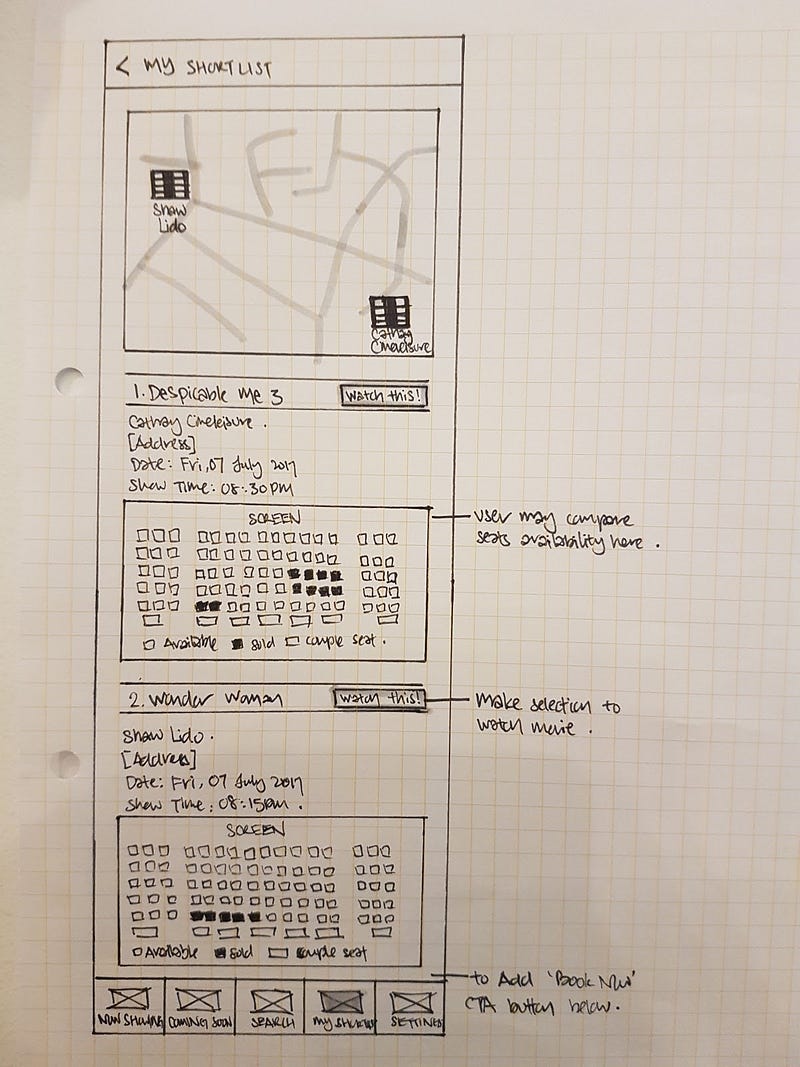 < MY SHORTLIST
Shaw
Lido
Cathay
Cineleisure
1. Despicable Me 3
Watch this!
Cathay Cineleisure.
[Address]
Date: Fri, 07 July 2017
Show Time: 08:30PM
SCREEN
Available Sold Couple seat.
User may compare
seats availability here.
2. Wonder Woman
Watch this!
Make selection to
watch movie.
Shaw Lido.
[Address]
Date: Fri, 07 July 2017
Show Time: 08:15pm.
SCREEN
Available Sold Couple seat
to Add 'Book Now'
CTA button below.
NOW SHOWING
COMING SOON
SEARCH
MY SHORTLIST
SETTINGS